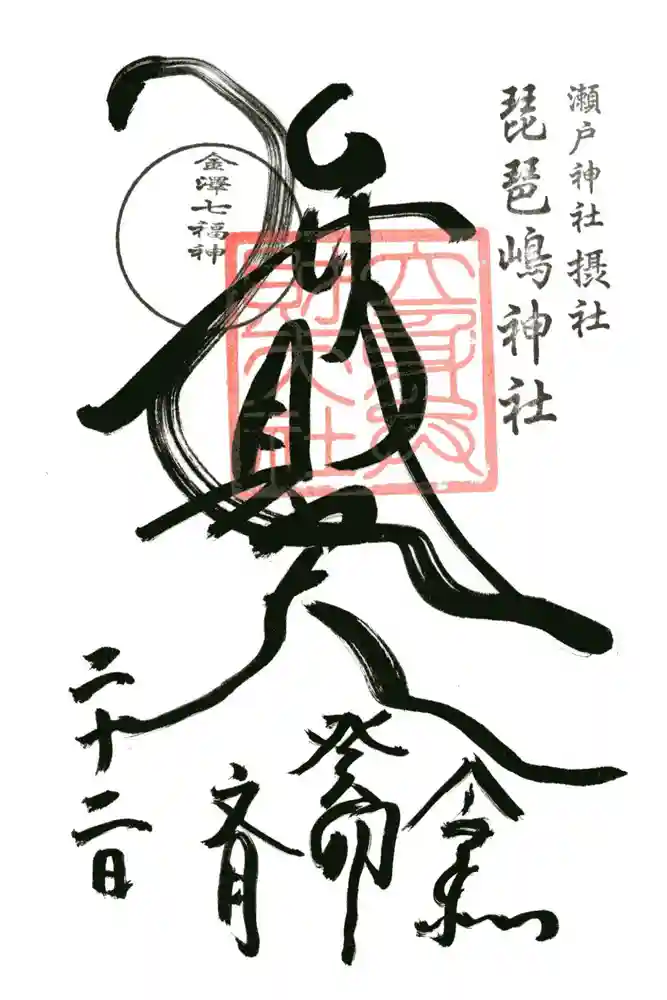 瀬戸神社 摂社
琵琶嶋神社
金澤七福神
弁財天
立身弁
財天社
令和
癸卯
文月
二十二日